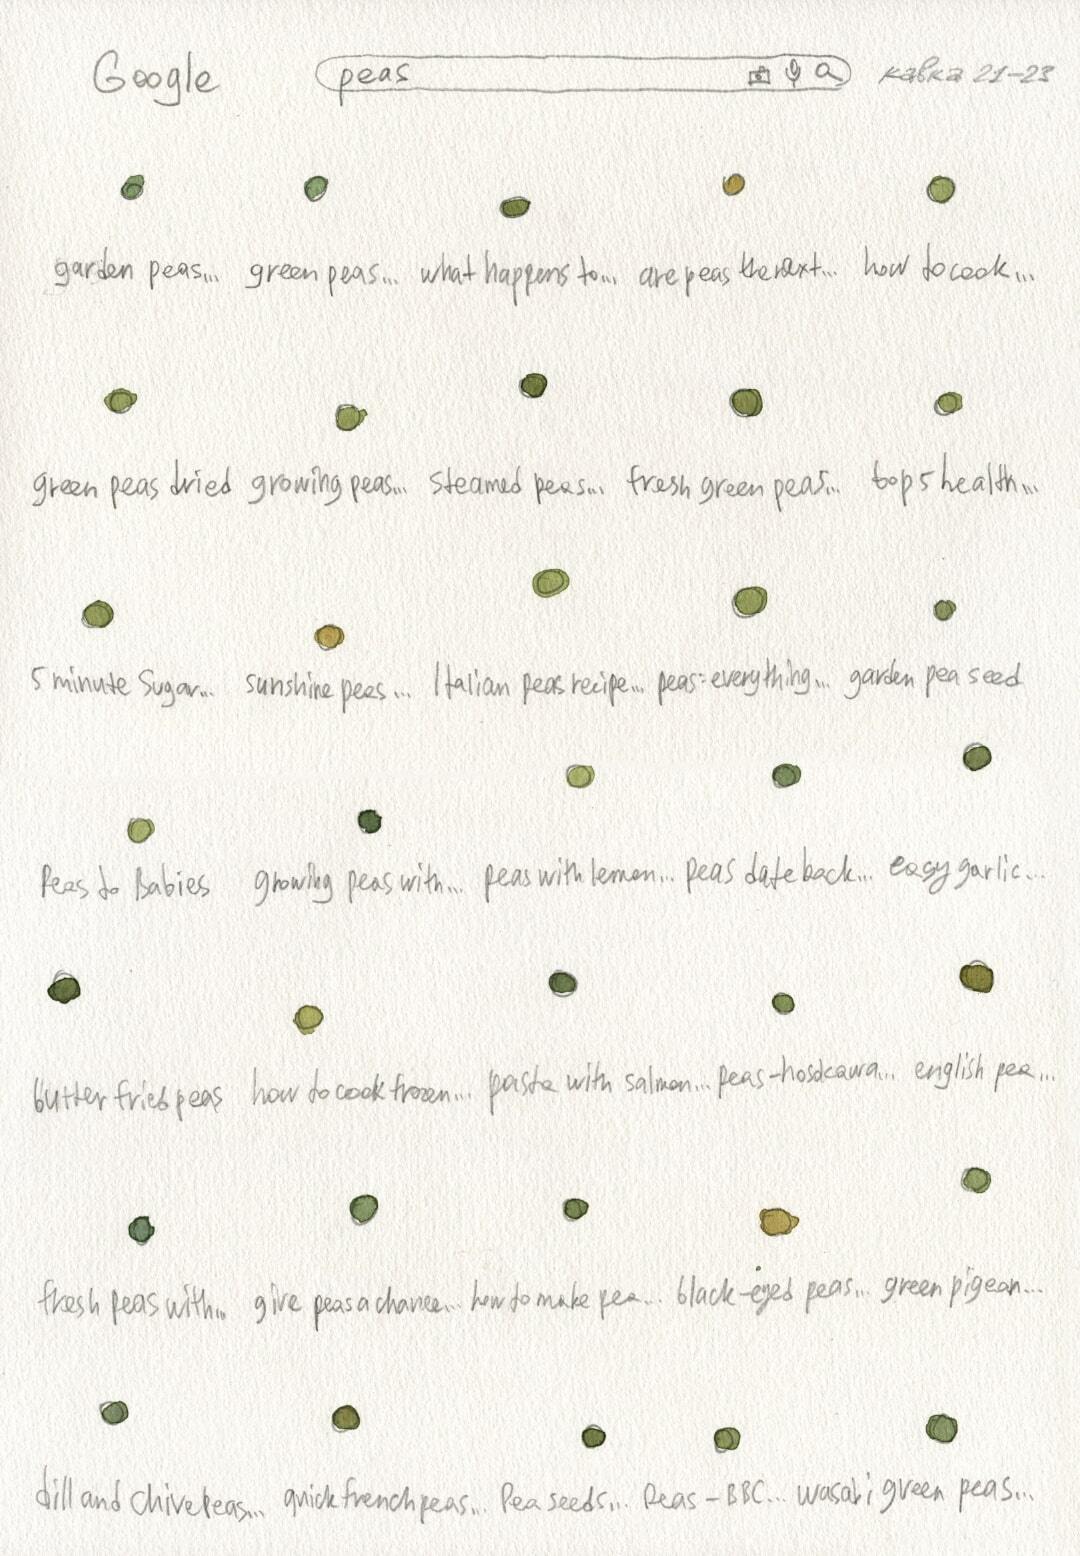 Google peas кавка 21-23
garden peas... green peas... what happens to... are peas the next... how to cook...
green peas dried growing peas... steamed peas... fresh green peas... top 5 health...
5 minute Sugar... sunshine peas... Italian peas recipe... peas-everything... garden pea seed
Peas to Babies growing peas with... peas with lemon... peas date back... easy garlic...
butter fried peas how to cook frozen... pasta with salmon... peas- english pea...
fresh peas with... give peas a chance... how to make pea... black-eyed peas... green pigeon...
dill and chive peas... quick french peas... Pea seeds... Peas - BBC... wasabi green peas...